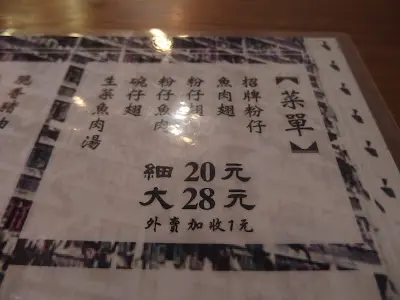 【菜單】
招牌粉仔
魚肉翅
粉仔翅
粉仔魚肉
碗仔翅
生菜魚肉湯
細 20 元
大 28 元
外賣加收1元